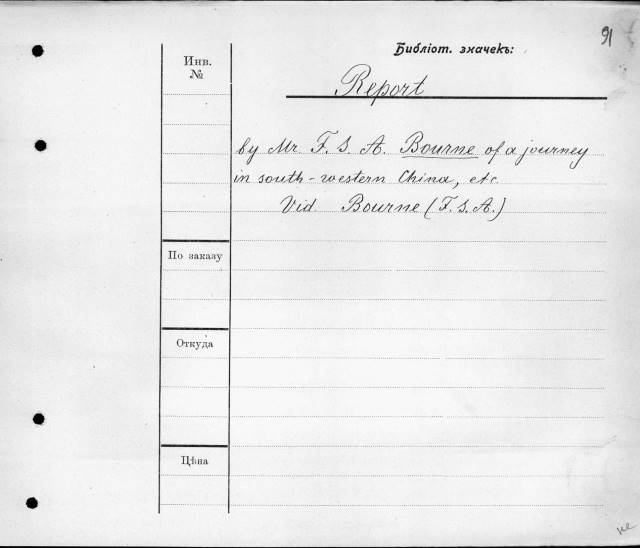 91
Библіот. значекъ:
Инв.
№
Report
by Mr. F. S. A. Bourne of a journey
in south-western China, etc.
Vid. Bourne (F. S. A.)
По заказу
Откуда
Цѣна